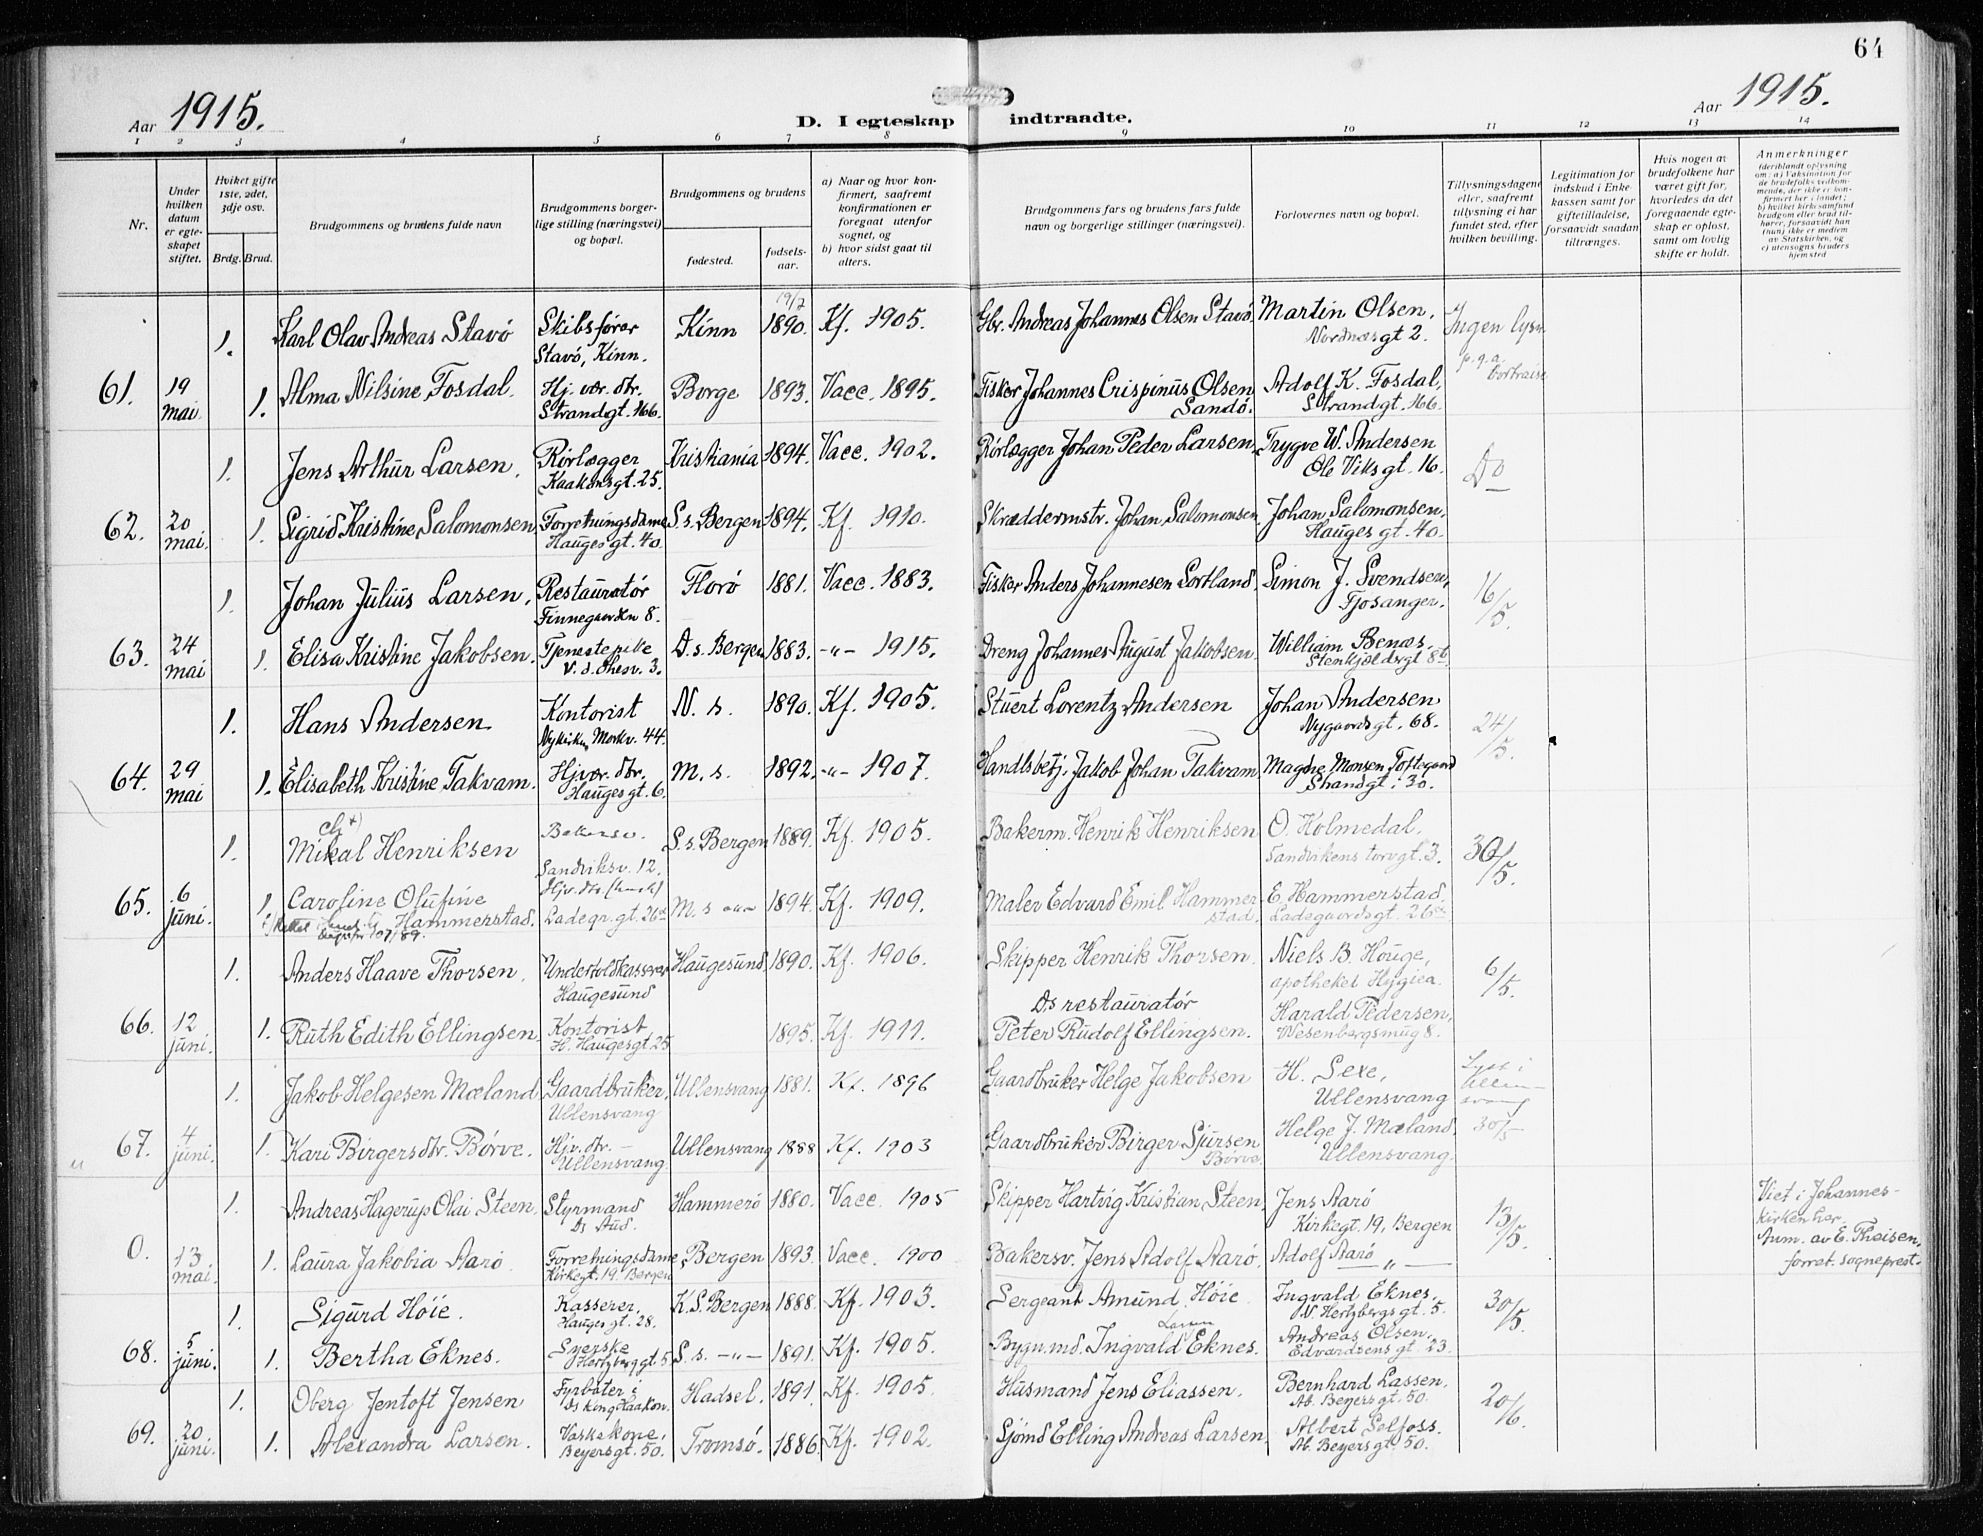 64
Aar 1915.
D. I egteskap indtraadte.
Aar 1915.
1 2 3 4 5 6 7 8 9 10 11 12 13 14
Nr.
Under hvilken datum er egteskapet stiftet.
Hvilket gifte 1ste, 2det, 3dje osv.
Brdg. Brud.
Brudgommens og brudens fulde navn
Brudgommens borgerlige stilling (næringsvei) og bopæl.
Brudgommens og brudens
fødested.
fødselsaar.
a) Naar og hvor konfirmert, saafremt konfirmationen er foregaat utenfor sognet, og
b) hvor sidst gaat til alters.
Brudgommens fars og brudens fars fulde navn og borgerlige stillinger (næringsvei).
Forlovernes navn og bopæl.
Tillysningsdagene eller, saafremt tillysning ei har fundet sted, efter hvilken bevilling.
Legitimation for indskud i Enkekassen samt for giftetilladelse, forsaavidt saadan tiltrænges.
Hvis nogen av brudefolkene har været gift før, hvorledes da det foregaaende egteskap er opløst, samt om lovlig skifte er holdt.
Anmerkninger (deriblandt oplysning om: a) Vaksination for de brudefolks vedkommende, der ikke er konfirmert her i landet; b) hvilket kirkesamfund brudgom eller brud tilhører, forsaavidt han (hun) ikke er medlem av Statskirken, og c) utensogns bruders hjemsted
1. Karl Olav Andreas Stavö Skibsfører Kinn 19/7 1890. Kf. 1905. Gbr. Andreas Johannes Olsen Stavö. Martin Olsen, Ingen lysn.
Stavö, Kinn. Nordnæsgt 2. p.g.a. bortreise
61. 19 mai. 1. Alma Nilsine Fosdal. Hj. vær. dtr. Borge 1893. Vacc. 1895. Fisker Johannes Crispinus Olsen Adolf K. Fosdal,
Strandgt. 166. Sandö. Strandgt. 166.
1. Jens Arthur Larsen. Rörlægger Kristiania 1894. Vacc. 1902. Rörlægger Johan Peder Larsen. Trygve W. Andersen Do
Haakonsgt. 25. Ole Viksgt. 16.
62. 20 mai. 1. Sigrid Kristine Salomonsen Forretningsdame S. s. Bergen 1894. Kf. 1910. Skræddermstr. Johan Salomonsen. Johan Salomonsen,
Hauges gt. 40. Hauges gt. 40.
1. Johan Julius Larsen. Restauratör Florö 1881. Vacc. 1883. Fisker Anders Johannesen Sortland. Simon J. Svendsen, 16/5.
Finnegaarden 8. Fjosanger.
63. 24 mai 1. Elisa Kristine Jakobsen. Tjenestepike D. s. Bergen 1883. -"- 1915. Dreng Johannes August Jakobsen. William Benæs.
3. Stenkjeldsgt 8b
1. Hans Andersen. Kontorist N. s. 1890. Kf. 1905. Stuert Lorentz Andersen Johan Andersen 24/5.
44. Nygaardsgt. 68.
64. 29 mai 1. Elisabeth Kristine Takvam. Hj.vær. dtr. M. s. 1892. -"- 1907. Handlsbetj. Jakob Johan Takvam. Magdne Monsen Toftegaard
Hauges gt. 6. Strandgt. 30.
1. Mikal Henriksen Bakersv. S. s. Bergen 1889. Kf. 1905. Bakerm. Henrik Henriksen O. Holmedal. 30/5.
Sandviksv. 12. Sandvikens torvgt. 3.
65. 6 juni. 1. Caroline Olufine Hjv. dtr. M. s -"- 1894. Kf. 1909. Maler Edvard Emil Hammerstad. E. Hammerstad.
Hammerstad. Ladegr. gt. 26 Ladegaardsgt. 26
1. Anders Haave Thorsen. Underholdkasserer Haugesund. 1890. Kf. 1906. Skipper Henrik Thorsen. Niels B. Houge, 6/5.
Haugesund Ds restauratör apotheket Hygiea.
66. 12 juni. 1. Ruth Edith Ellingsen. Kontorist 1895. Kf. 1911. Peter Rudolf Ellingsen. Harald Pedersen,
H. Haugesgt. 25 Wesenbergsmug 8.
1. Jakob Helgesen Mæland Gaardbruker, Ullensvang 1881. Kf. 1896 Gaardbruker Helge Jakobsen H. Sexe, Lyst i Ullensvang
Ullensvang Ullensvang
67. 4 juni. 1. Kari Birgersdtr. Börve. Hjv. dtr. Ullensvang 1888 Kf. 1903 Gaardbruker Birger Sjursen Helge J. Mæland. 30/5
Ullensvang. Börve. Ullensvang.
1. Andreas Hagerup Olai Steen. Styrmand Hammerö 1880. Vacc. 1905 Skipper Hartvig Kristian Steen, Jens Aarö 13/5. Viet i Johannes-
Ds Aud. Kirkegt. 19, Bergen kirken her.
0. 13 mai. 1. Laura Jakobia Aarö Forretningsdame Bergen 1893. Vacc. 1900 Bakersv. Jens Adolf Aarö. Adolf Aarö -"- Anm. av E. Theisen,
Kirkegt. 19. Bergen forret. sogneprest.
1. Sigurd Höie. Kasserer. K. S. Bergen 1888. Kf. 1903. Sergeant Amund Höie Ingvald Eknes, 30/5.
Hauges gt. 28. N. Hertzbergs gt. 5.
68. 5 juni. 1. Bertha Eknes. Syerske S. s. -"- 1891. Kf. 1905. Bygn.md. Ingvald Larsen Eknes. Andreas Olsen.
Hertzberg gt. 5 Edvardsens gt. 23.
1. Oberg Jentoft Jensen Fyrböter i Hadsel. 1891. Kf. 1905. Husmand Jens Eliassen. Bernhard Lassen. 20/6.
Ds King Haakon. Ab. Beyers gt. 50.
69. 20 juni. 1. Alexandra Larsen. Vaskekone. Tromsö. 1886. Kf. 1902. Sjömd Elling Andreas Larsen. Albert Selfoss.
Beyersgt. 50. Ab. Beyers gt. 50.